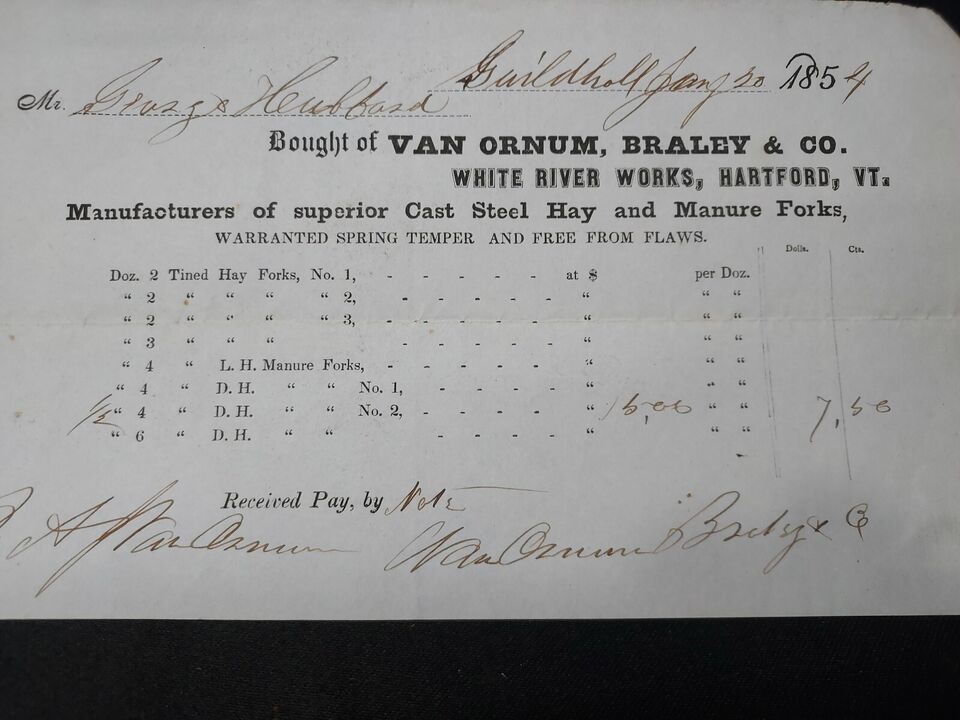 Guildhall Jany 20 1854
Mr. George Hubbard
Bought of VAN ORNUM, BRALEY & CO.
WHITE RIVER WORKS, HARTFORD, VT.
Manufacturers of superior Cast Steel Hay and Manure Forks,
WARRANTED SPRING TEMPER AND FREE FROM FLAWS.
Dolls. Cts.
Doz. 2 Tined Hay Forks, No. 1, - - - - - at $ per Doz.
“ 2 “ “ “ “ 2, - - - - - “ “ “
“ 2 “ “ “ “ 3, - - - - - “ “ “
“ 3 “ “ “ - - - - - “ “ “
“ 4 “ L. H. Manure Forks, - - - - - “ “ “
“ 4 “ D. H. “ “ No. 1, - - - - “ “ “
1/2 “ 4 “ D. H. “ “ No. 2, - - - - “ 15,00 “ “ 7,50
“ 6 “ D. H. “ “ - - - - “ “ “
Received Pay, by Note
Van Ornum Braley & Co
A Van Ornum